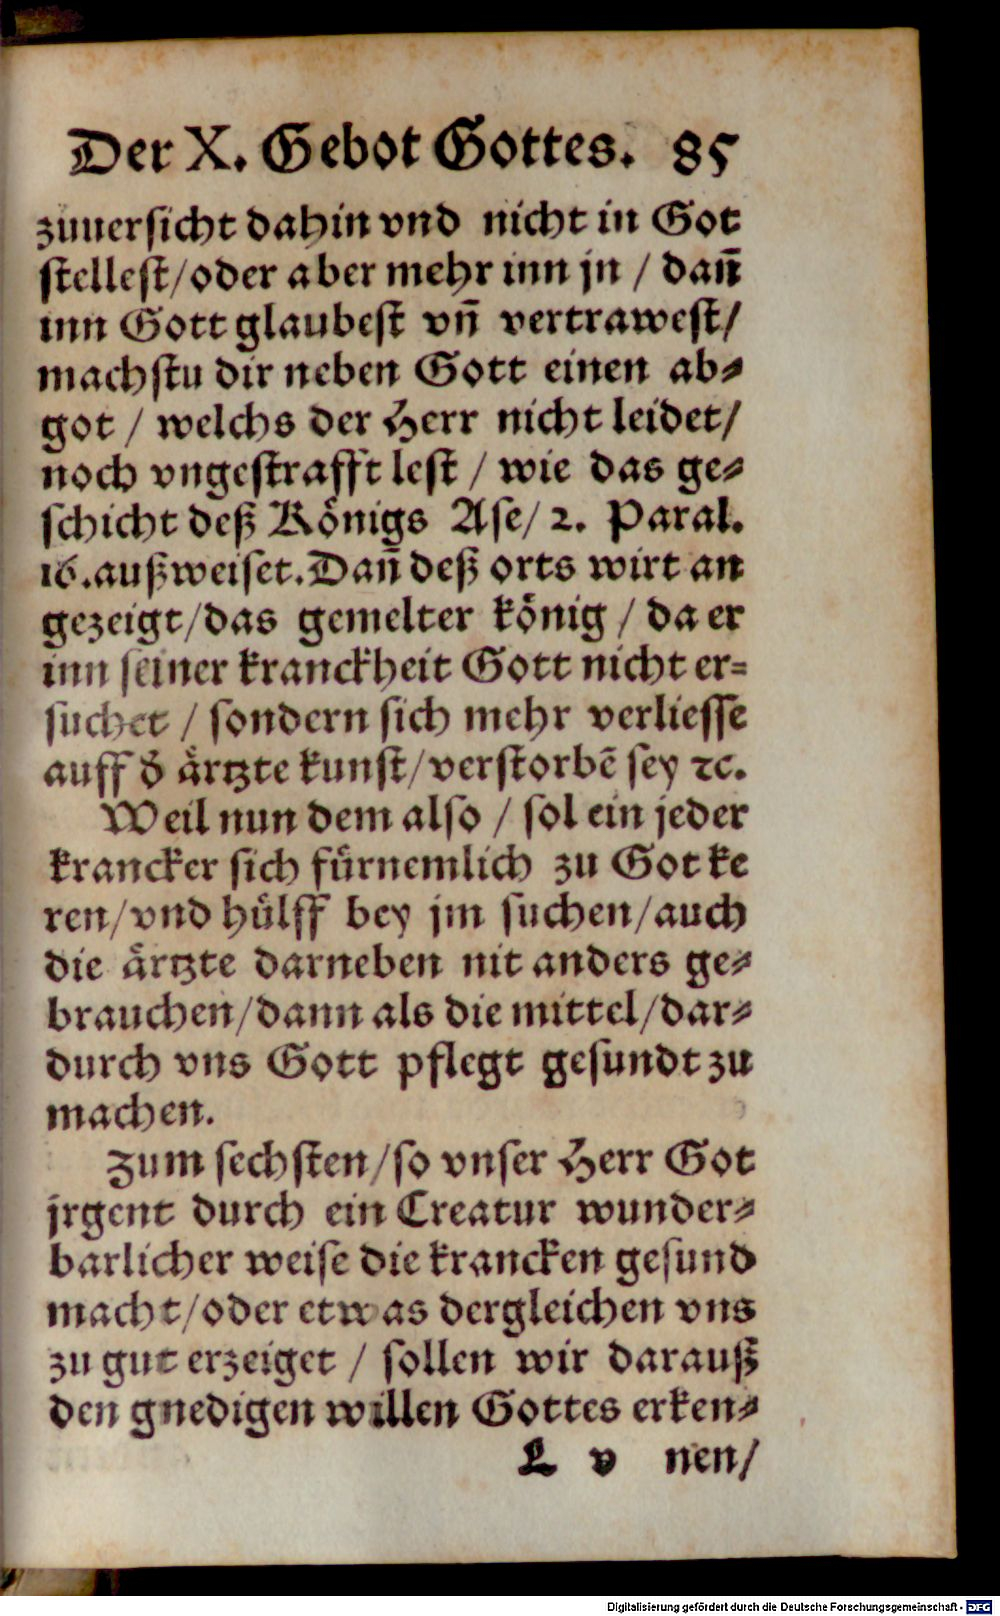 Der X. Gebot Gottes. 85
zuuersicht dahin vnd nicht in Got
stellest/oder aber mehr inn jn / dañ
inn Gott glaubest vñ vertrawest/
machstu dir neben Gott einen ab⸗
got / welchs der Herr nicht leidet/
noch vngestrafft lest / wie das ge⸗
schicht deß Königs Ase/ 2. Paral.
16.außweiset.Dañ deß orts wirt an
gezeigt/das gemelter könig / da er
inn seiner kranckheit Gott nicht er⸗
suchet / sondern sich mehr verliesse
auff d̕ ärtzte kunst/verstorbē sey ꝛc.
Weil nun dem also / sol ein jeder
krancker sich fürnemlich zu Got ke
ren/vnd hülff bey jm suchen/auch
die ärtzte darneben nit anders ge⸗
brauchen/dann als die mittel/dar⸗
durch vns Gott pflegt gesundt zu
machen.
Zum sechsten/so vnser Herr Got
jrgent durch ein Creatur wunder⸗
barlicher weise die krancken gesund
macht/oder etwas dergleichen vns
zu gut erzeiget / sollen wir darauß
den gnedigen willen Gottes erken⸗
L v nen/
Digitalisierung gefördert durch die Deutsche Forschungsgemeinschaft - DFG